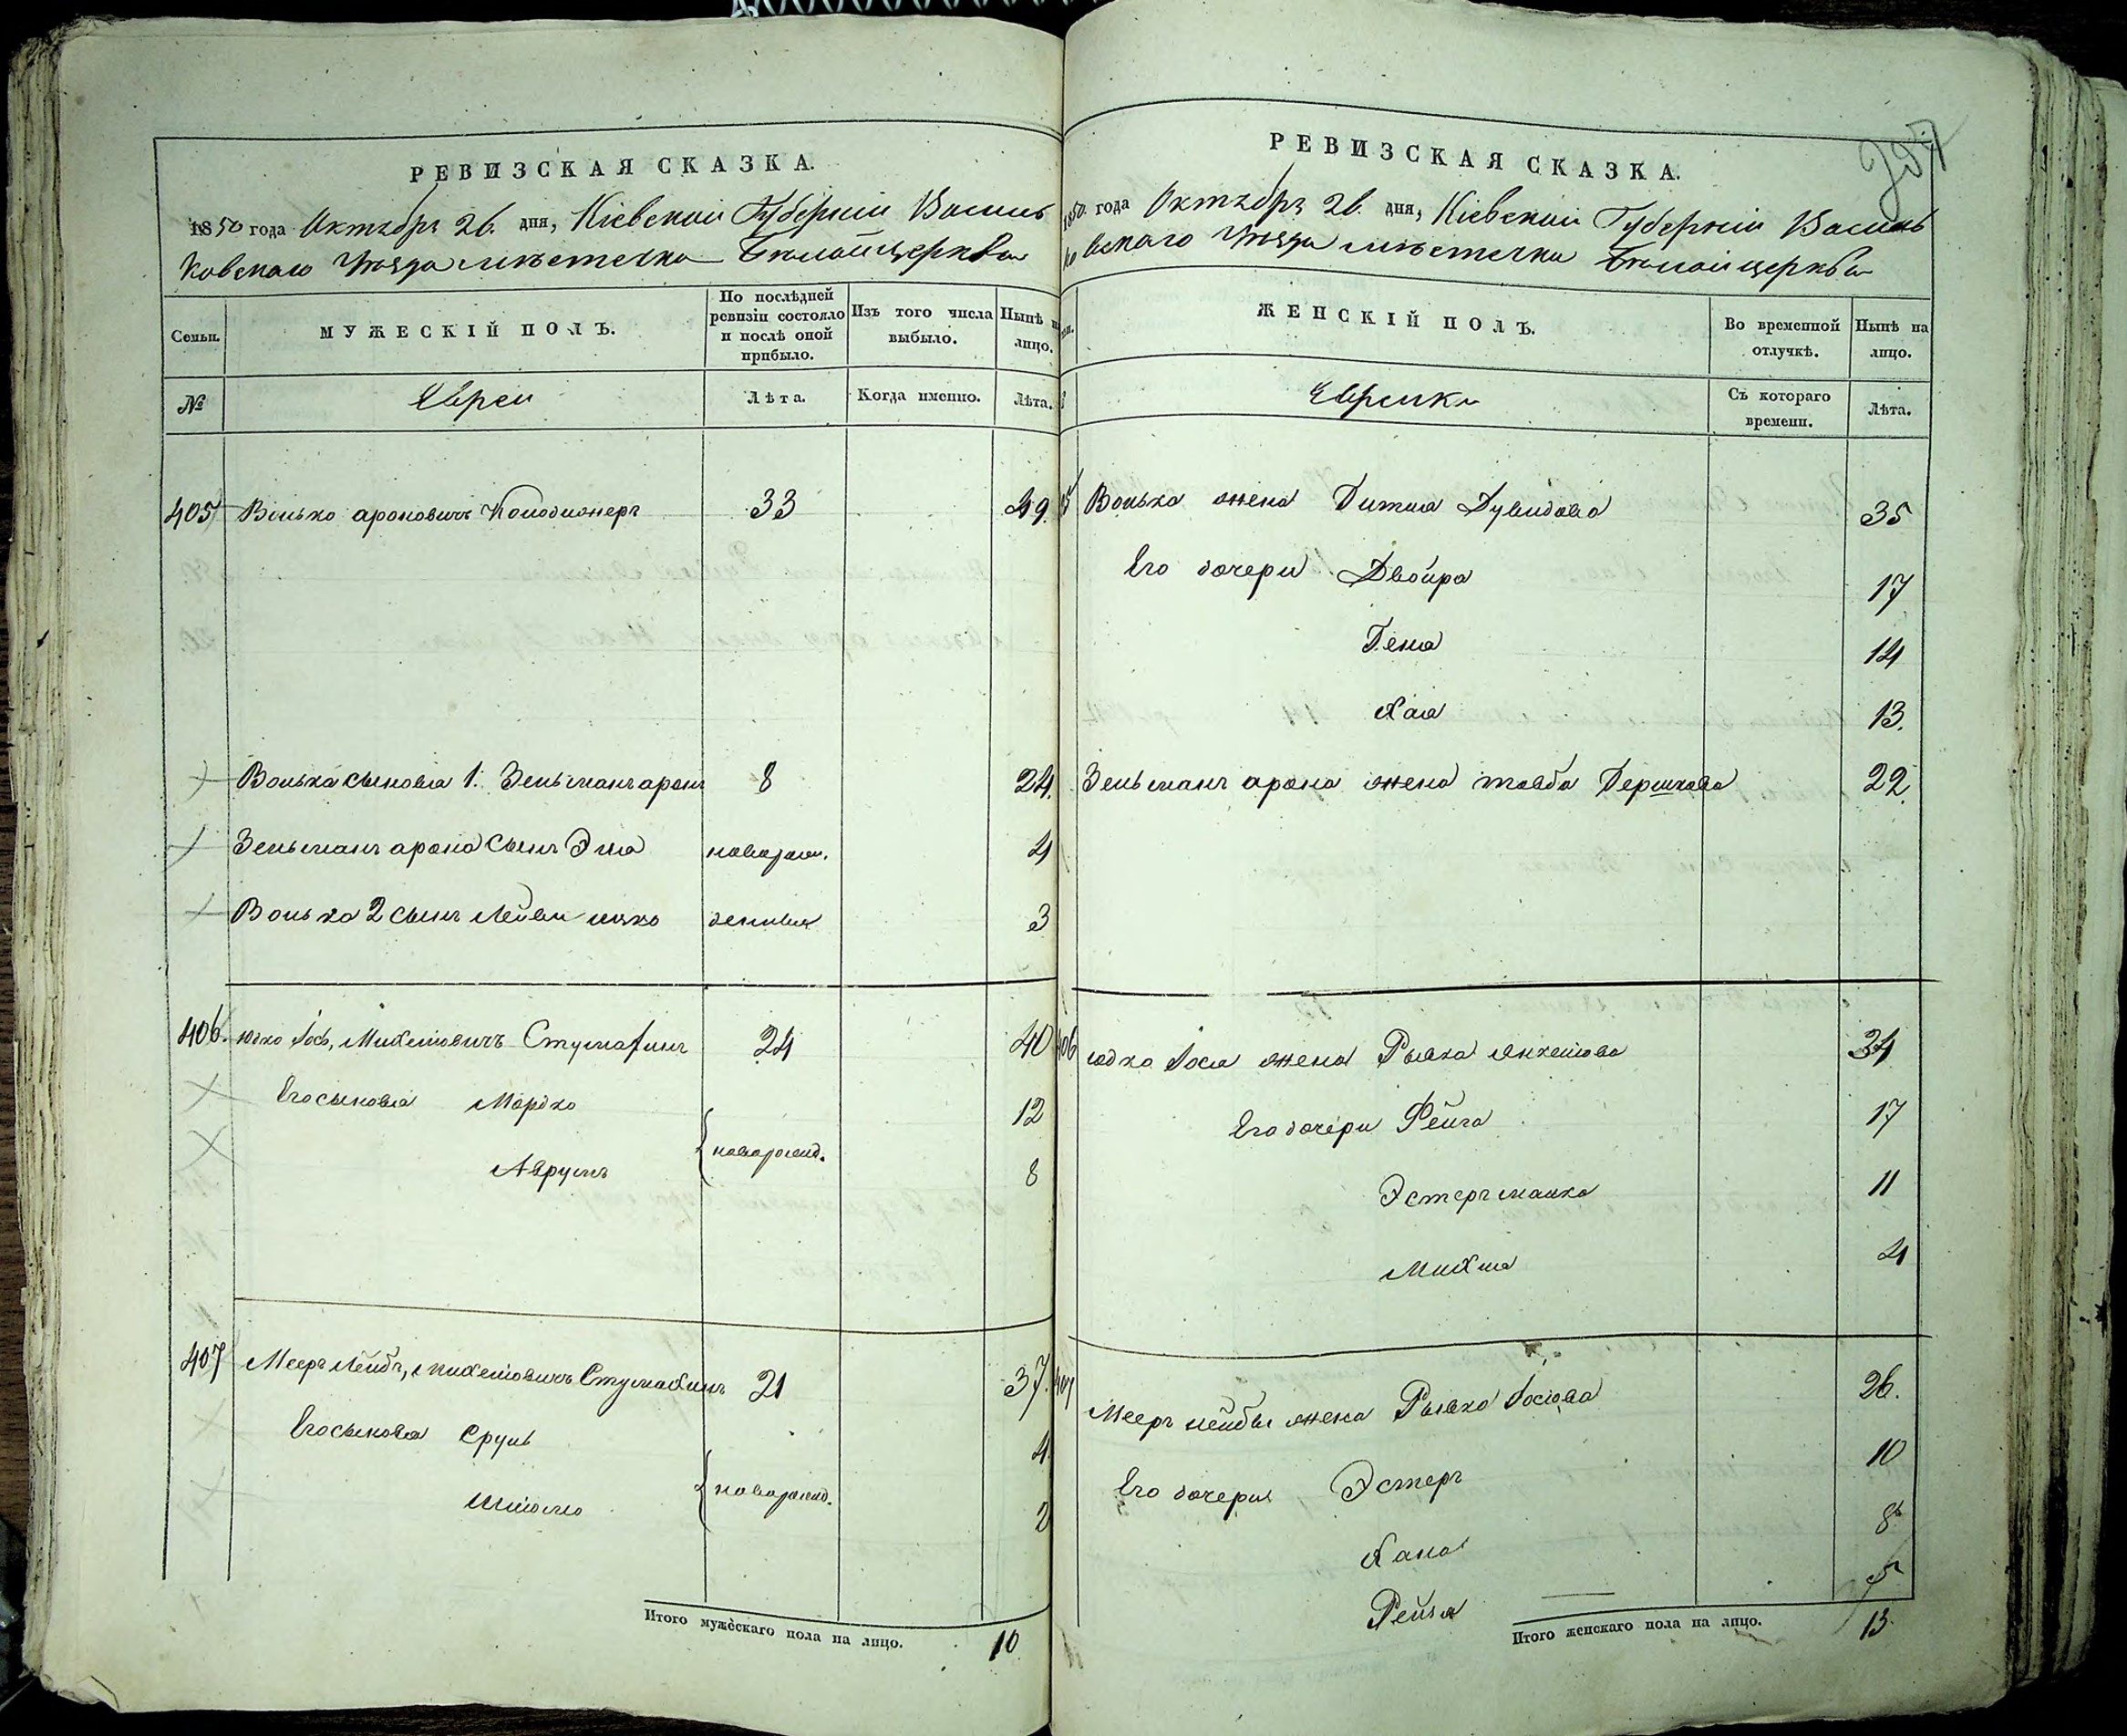 РЕВИЗСКАЯ СКАЗКА.
1850 года Октября 26. дня, Кіевской Губерніи Василь
ковскаго Уѣзда мѣстечка Бѣлойцеркви
Семьи.
МУЖЕСКІЙ ПОЛЪ.
По послѣдней ревизіи состояло и послѣ оной прибыло.
Изъ того числа выбыло.
Нынѣ на лицо.
№
Евреи
Лѣта.
Когда именно.
Лѣта.
405 Волько ароновичъ 33 49.
Волька сыновья 1. Зельманъ аронъ 8 24.
Зельманъ арона сынъ Эля новорож. 4
Волька 2 сынъ Лейви 3
406. юдко Іось, Михелювичъ 24 40
Его сыновья Мордко 12
Аврумъ новорожд. 8
407 Мееръ Лейбъ, михелювичъ 21 37.
Его сыновья Сруль 4
Шлюмо новорожд. 2
Итого мужескаго пола на лицо. 10
РЕВИЗСКАЯ СКАЗКА.
1850 года Октября 26. дня, Кіевской Губерніи Василь
ковскаго Уѣзда мѣстечка Бѣлойцеркви
ЖЕНСКІЙ ПОЛЪ.
Во временной отлучкѣ.
Нынѣ на лицо.
Еврейки
Съ котораго времени.
Лѣта.
Волька жена Гитля Дувидова 35
Его дочери Двойра 17
Гена 14
Хая 13.
Зельманъ арона жена товба Гершкова 22.
406 юдка Іося жена Рывка янкелюва 34
Его дочери Фейга 17
Эстеръ малка 11
Михля 4
407 Мееръ лейбы жена Рывка Іосіова 26.
Его дочери Эстеръ 10
Хана 8
Рейзя 5
Итого женскаго пола на лицо. 13.